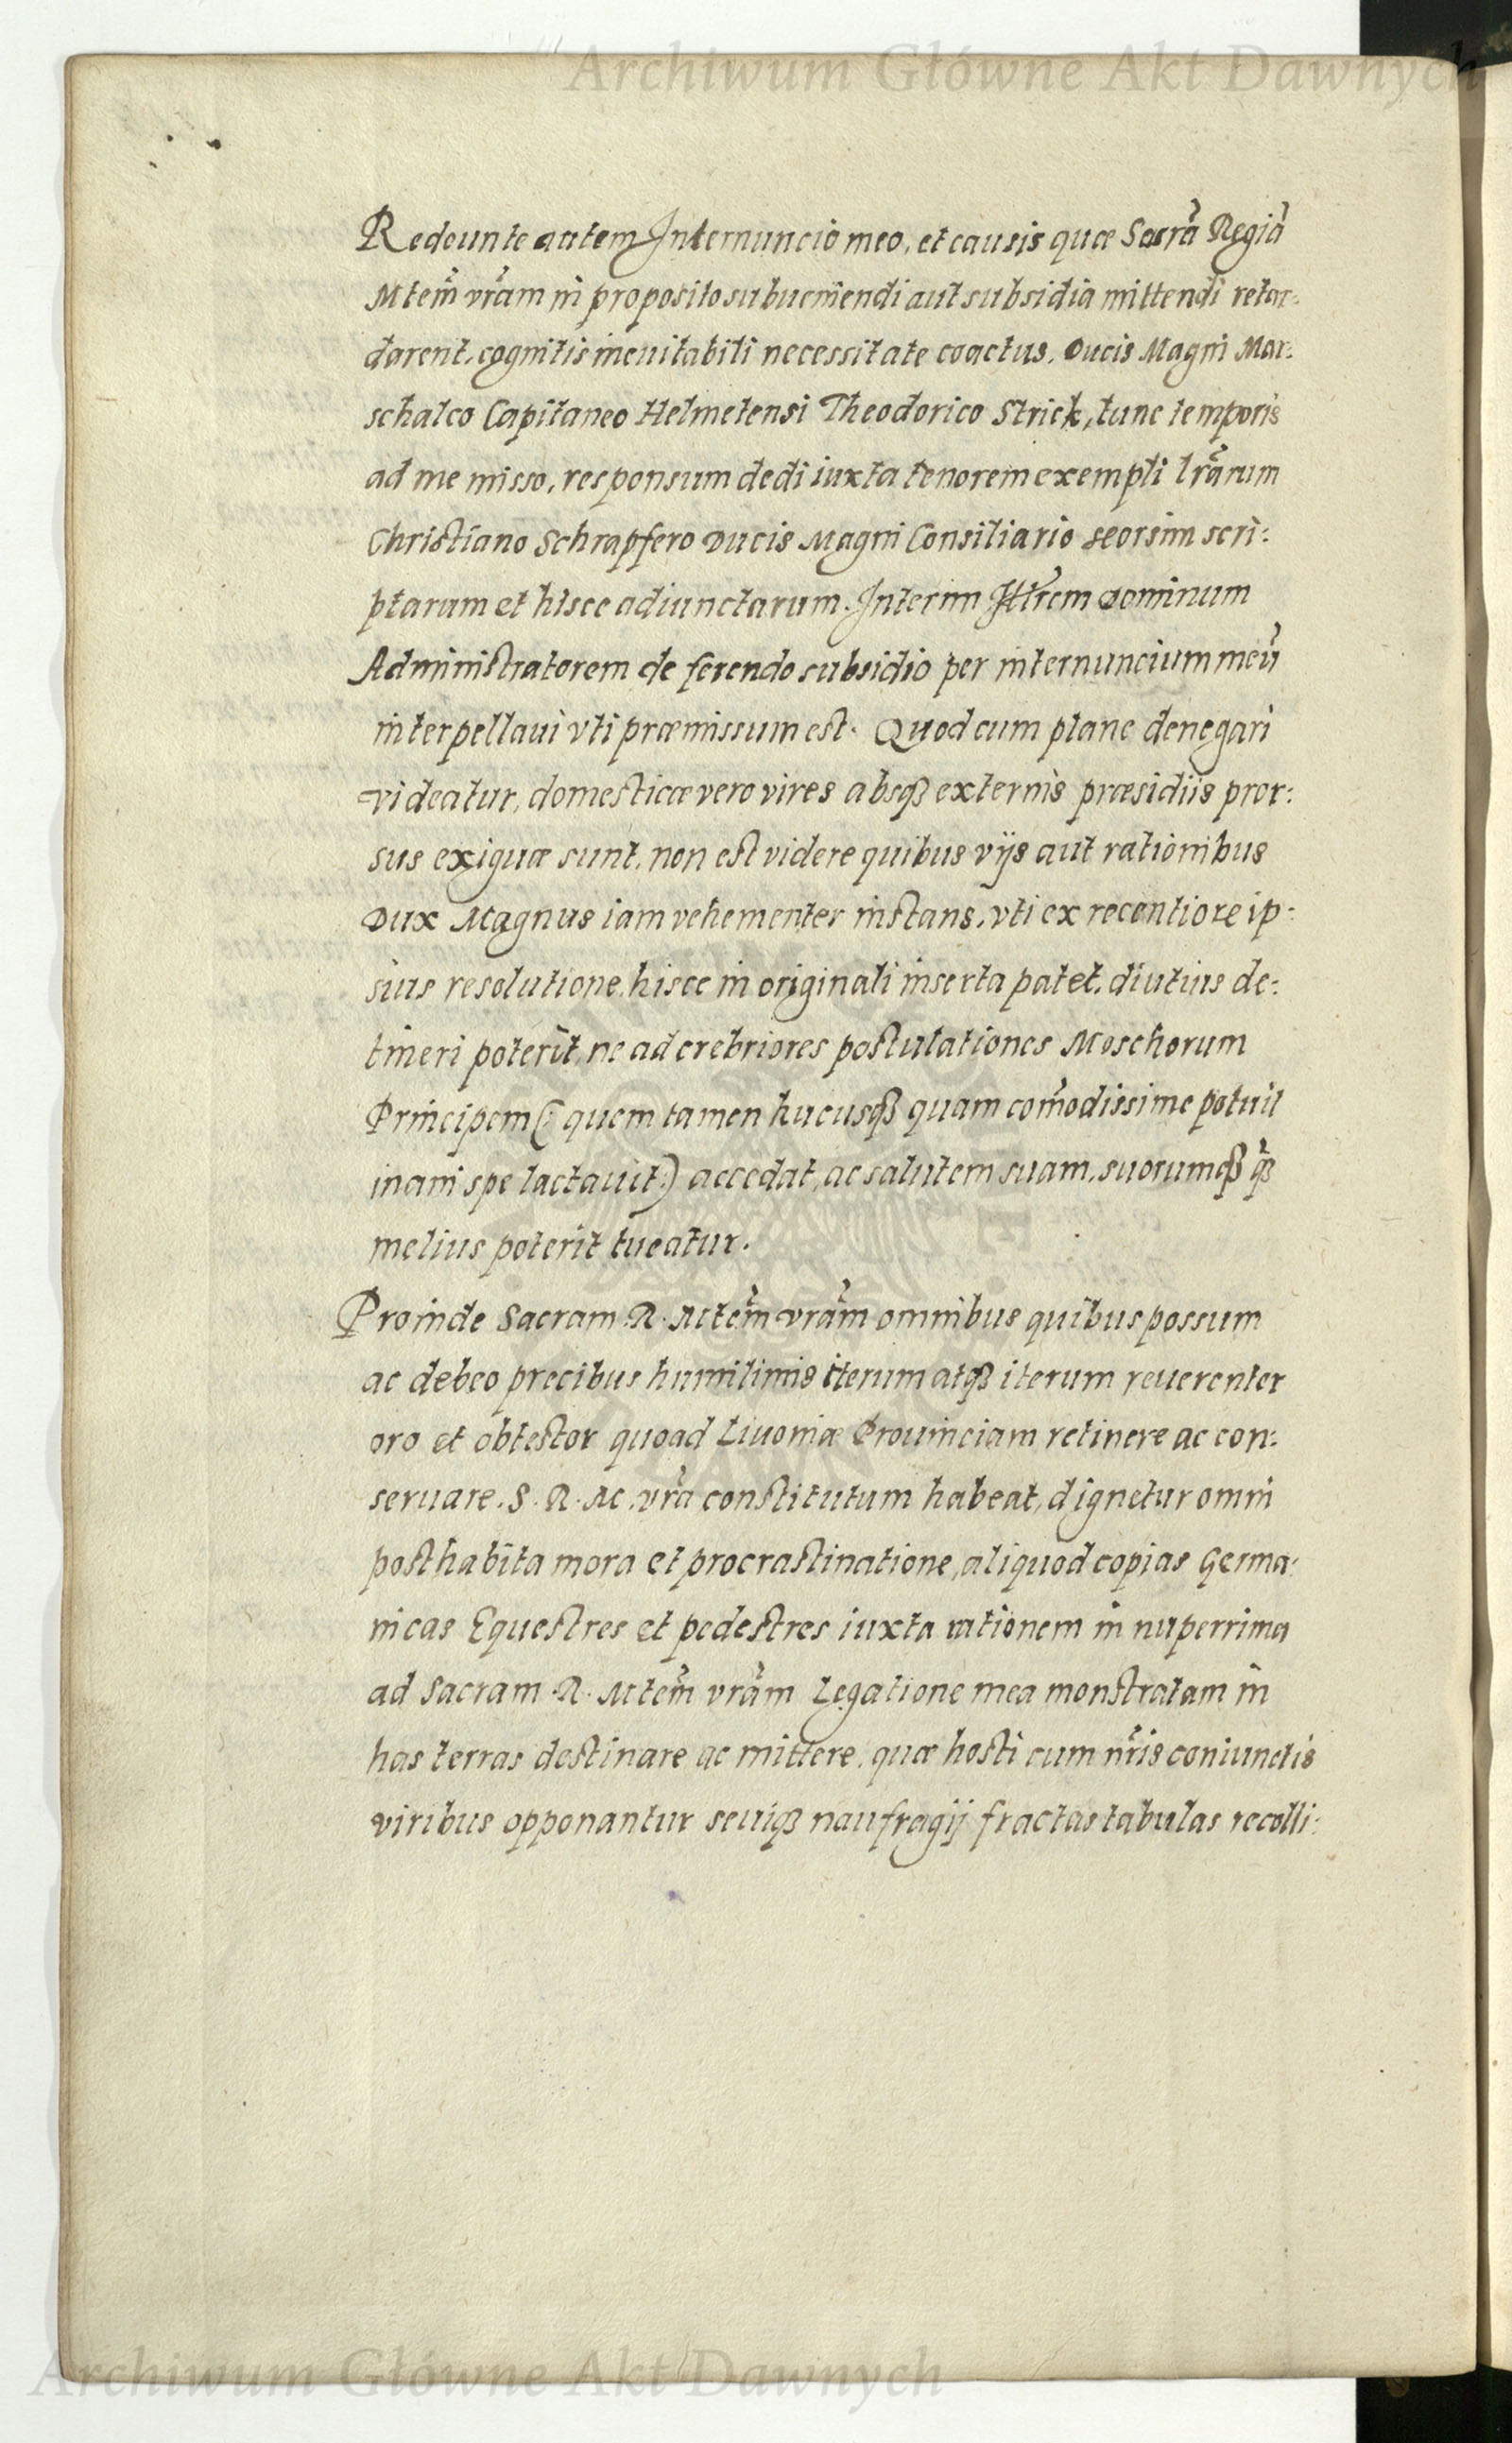 Archiwum Główne Akt Dawnych
Redeunte autem Internuncio meo, et causis quæ Sacrã Regiã
Mtem̃ vrãm in proposito subueniendi aut subsidia mittendi retar:
darent, cognitis ineuitabili necessitate coactus, Ducis Magni Mar:
schalco Capitaneo Helmetensi Theodorico Strick, tunc temporis
ad me misso, responsum dedi iuxta tenorem exempli lrãrum
Christiano Schrapfero Ducis Magni Consiliario seorsim scri:
ptarum et hisce adiunctarum. Interim Dominum
Administratorem de ferendo subsidio per internuncium meũ
interpellaui vti præmissum est. Quod cum plane denegari
videatur, domesticæ vero vires absqꝫ externis præsidiis pror:
sus exiguæ sunt, non est videre quibus vijs aut rationibus
Dux Magnus iam vehementer instans, vti ex recentiore ip:
sius resolutione hisce in originali inserta patet, diutius de:
tineri poterit, ne ad crebriores postulationes Moschorum
Principem (: quem tamen hucusqꝫ quam com̃odissime potuit
inani spe lactauit :) accedat, ac salutem suam, suorumqꝫ q̃ꝫ
melius poterit tueatur.
Proinde Sacram R. Mtem̃ vrãm omnibus quibus possum
ac debeo precibus humilimis iterum atqꝫ iterum reuerenter
oro et obtestor quoad Liuoniæ Prouinciam retinere ac con:
seruare, S. R. M. vrã constitutum habeat, dignetur omni
posthabita mora et procrastinatione, aliquod copias Germa:
nicas Equestres et pedestres iuxta rationem in nuperrima
ad Sacram R. Mtem̃ vrãm Legatione mea monstratam in
has terras destinare ac mittere, quæ hosti cum nr̃is coniunctis
viribus opponantur seuiqꝫ naufragij fractas tabulas recolli:
Archiwum Główne Akt Dawnych